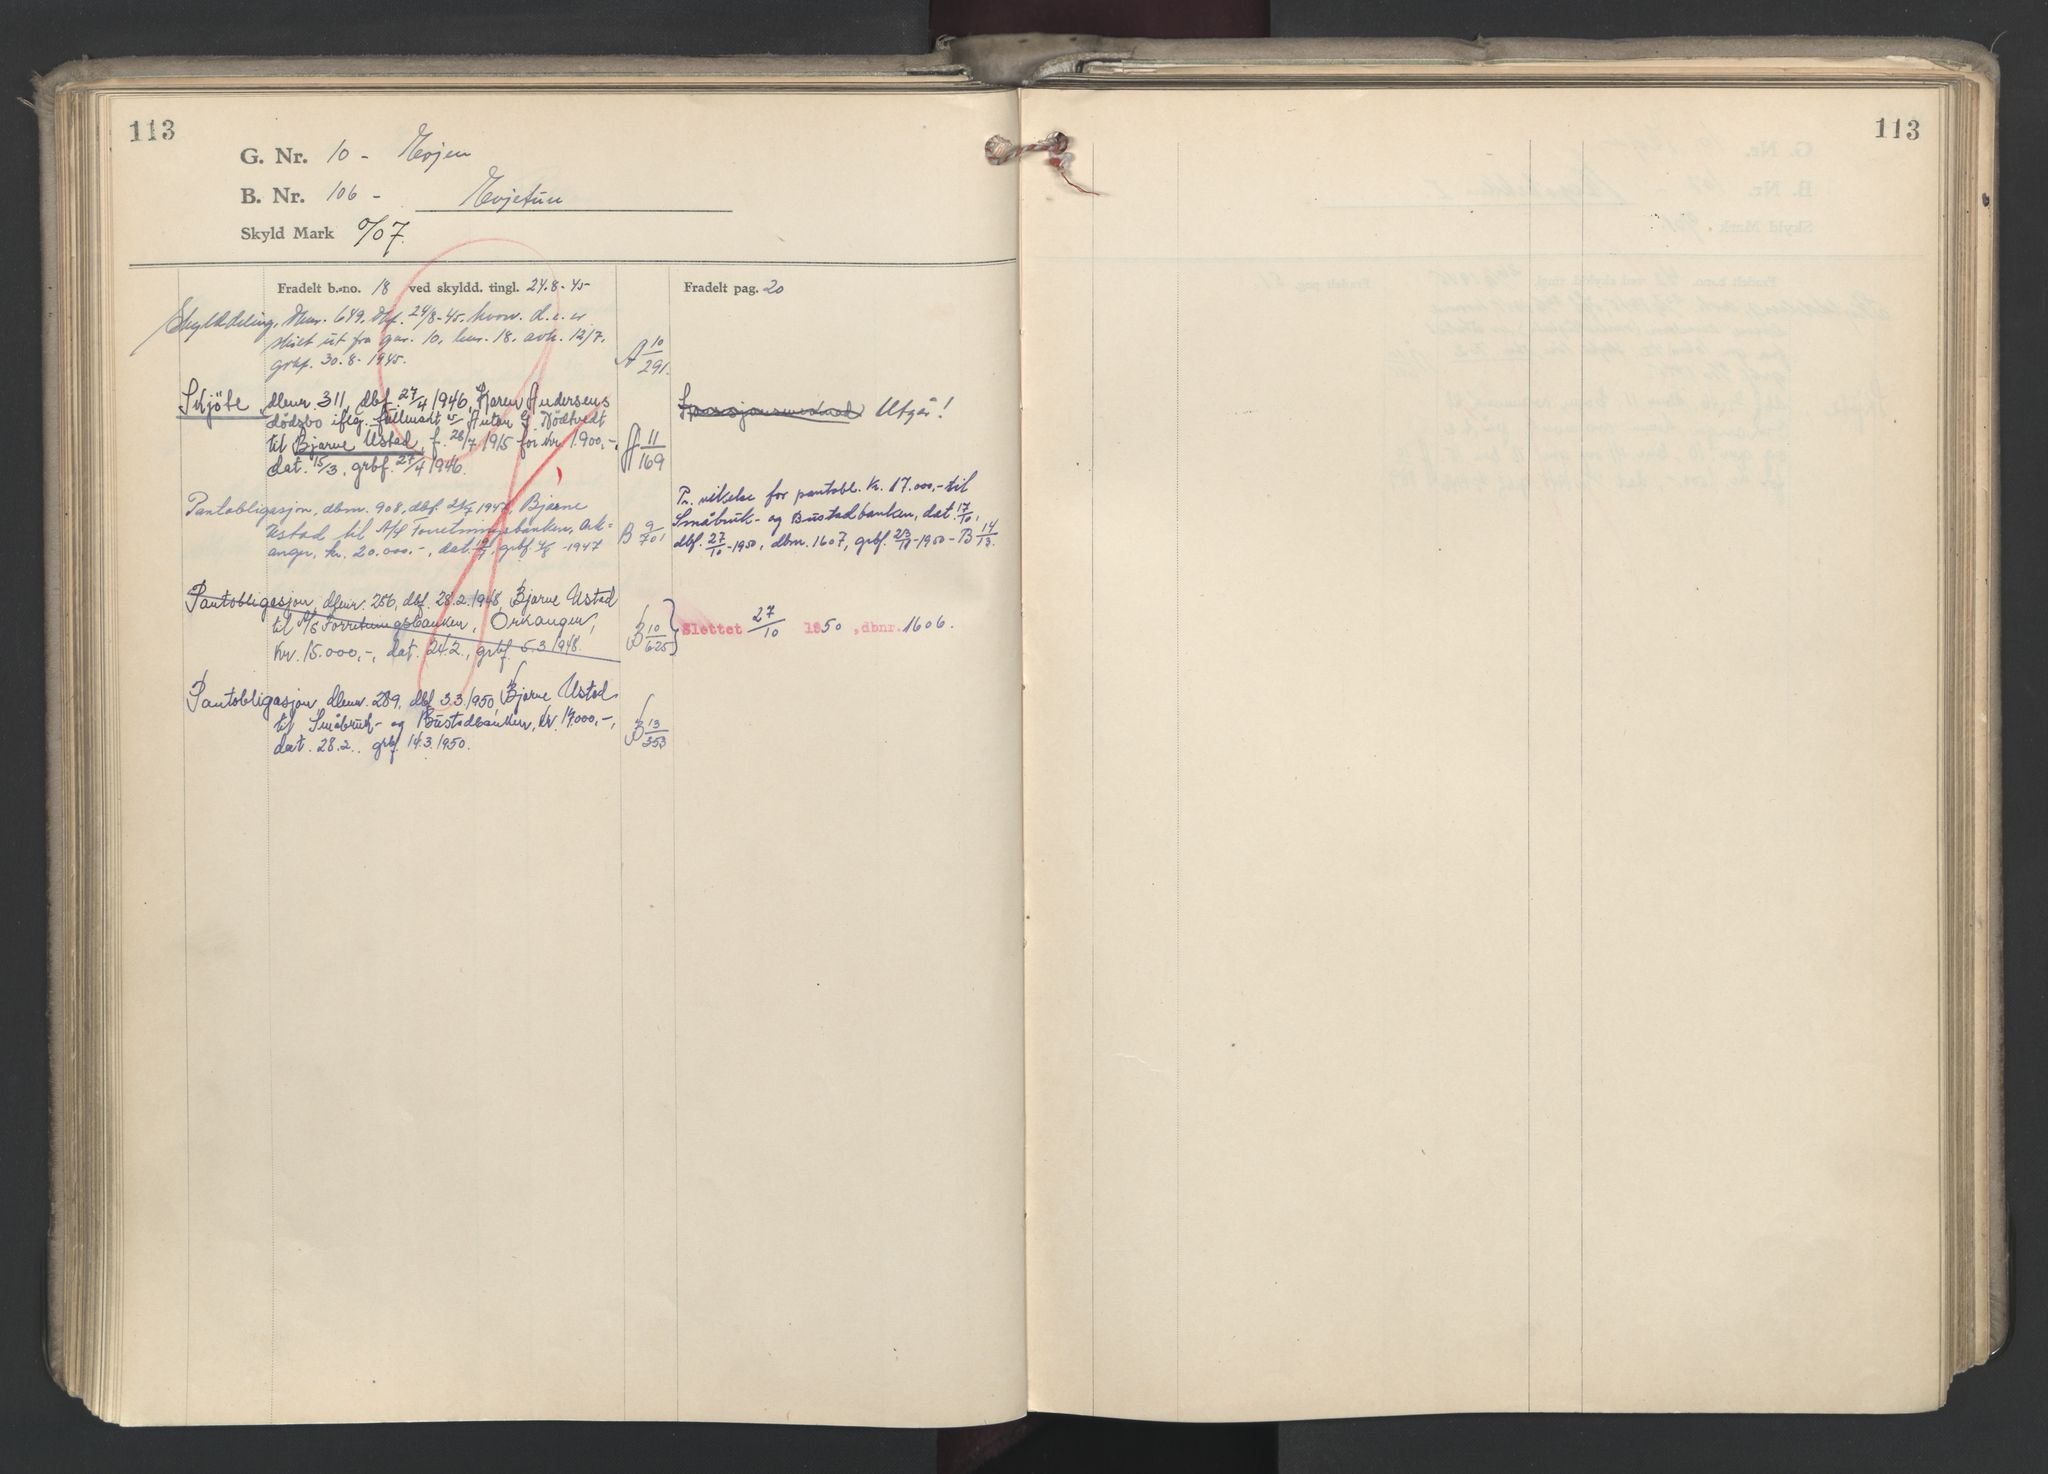 113
G. Nr. 10 - Evjen
B. Nr. 106 - Evjetun
Skyld Mark 0/07.
Fradelt b.-no. 18 ved skyldd. tingl. 24.8-45
Fradelt pag. 20
Skylddeling, dbnr. 649, dbf. 24/8-45, hvorv. d.e. er
skilt ut fra gnr. 10, bnr. 18. avh. 12/7,
grbf. 30.8-1945.
A 10/291.
Skjöte, dbnr. 311, dbf. 27/4 1946, Karen Andersens
dödsbo iflg. fullmakt v/ Anton G. Nödtvedt
til Bjarne Ustad, f. 28/7 1915 for kr. 1.900,-,
dat. 15/3, grbf. 27/4 1946.
A 11/169
Utgår!
Pantobligasjon, dbnr. 908, dbf. 1947, Bjarne
Ustad til A/S Forretningsbanken, Ork=
anger, kr. 20.000.-, dat. grbf. -1947
B 9/701
Pr. vikelse for pantobl. kr. 17.000,- til
Småbruk- og Bustadbanken, dat. 17/10,
dbf. 27/10-1950, dbnr. 1607, grbf. -1950 - B 14/13.
Pantobligasjon, dbnr. 256, dbf. 28.2.1948, Bjarne Ustad
til A/S Forretningsbanken, Orkanger,
kr. 15.000,-, dat. 24.2., grbf. 5.3.1948.
B 10/625
Slettet 27/10 1950, dbnr. 1606.
Pantobligasjon dbnr. 289, dbf. 3.3.1950 Bjarne Ustad
til Småbruk- og Bustadbanken, kr. 14000,-,
dat. 28.2. grbf. 14.3.1950.
B 13/353
113